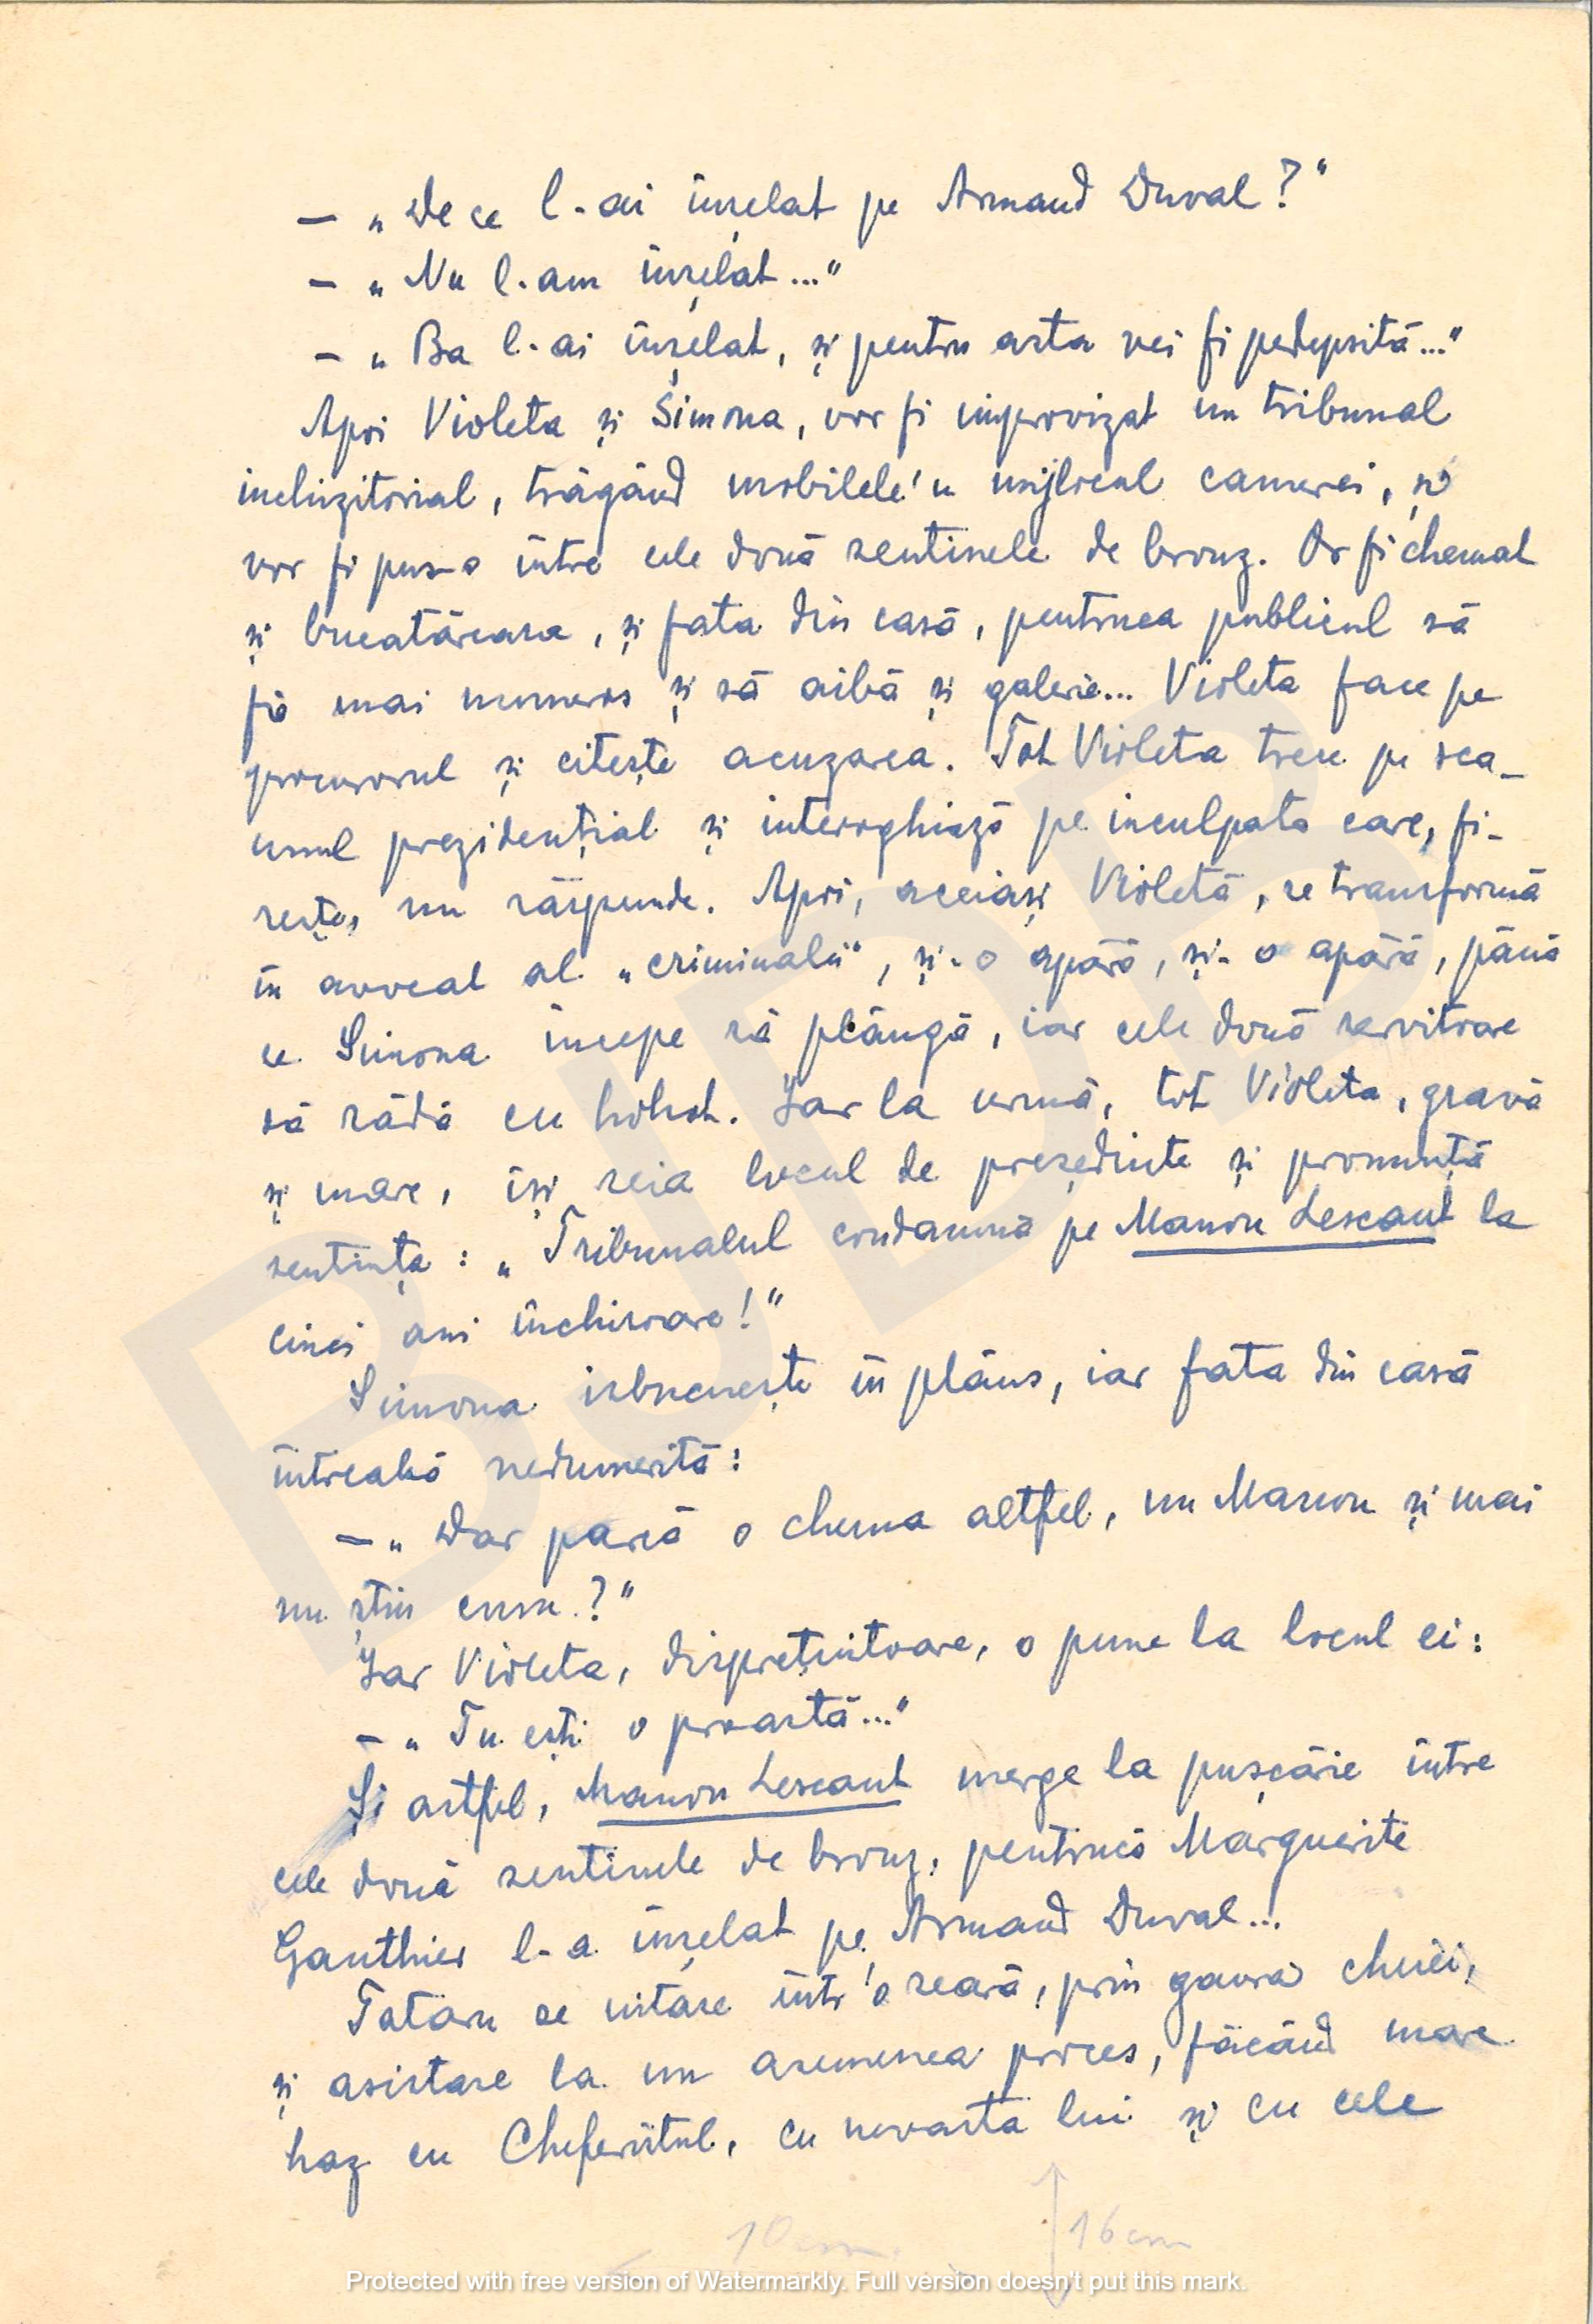 — „De ce l-ai înșelat pe Armand Duval?"
— „Nu l-am înșelat..."
— „Ba l-ai înșelat, și pentru asta vei fi pedepsită..."
Apoi Violeta și Simona, vor fi improvizat un tribunal
inchizitorial, trăgând mobilele'n mijlocul camerei, și
vor fi pus-o între cele două sentinele de bronz. Or fi chemat
și bucatăreasa, și fata din casă, pentruca publicul să
fie mai numeros și să aibă și galerie... Violeta face pe
procurorul și citește acuzarea. Tot Violeta trece pe sca-
unul prezidențial și interoghiază pe inculpata care, fi-
rește, nu răspunde. Apoi, aceiași Violetă, se transformă
în avocat al „criminalei", și-o apără, și-o apără, până
ce Simona începe să plângă, iar cele două servitoare
să râdă cu hohot. Iar la urmă, tot Violeta, gravă
și mare, își reia locul de președinte și pronunță
sentința: „Tribunalul condamnă pe Manon Lescaut la
cinci ani închisoare!"
Simona isbucnește în plâns, iar fata din casă
întreabă nedumerită:
— „Dar parcă o chema altfel, nu Manon și mai
nu știu cum?"
Iar Violeta, disprețuitoare, o pune la locul ei:
— „Tu ești o proastă..."
Și astfel, Manon Lescaut merge la pușcărie între
cele două sentinele de bronz, pentrucă Marguerite
Gauthier l-a înșelat pe Armand Duval...
Tataru se uitase într'o seară, prin gaura cheiei,
și asistase la un asemenea proces, făcând mare
haz cu Cheferistul, cu nevasta lui și cu cele
10 cm.
16 cm
BJDB
Protected with free version of Watermarkly. Full version doesn't put this mark.